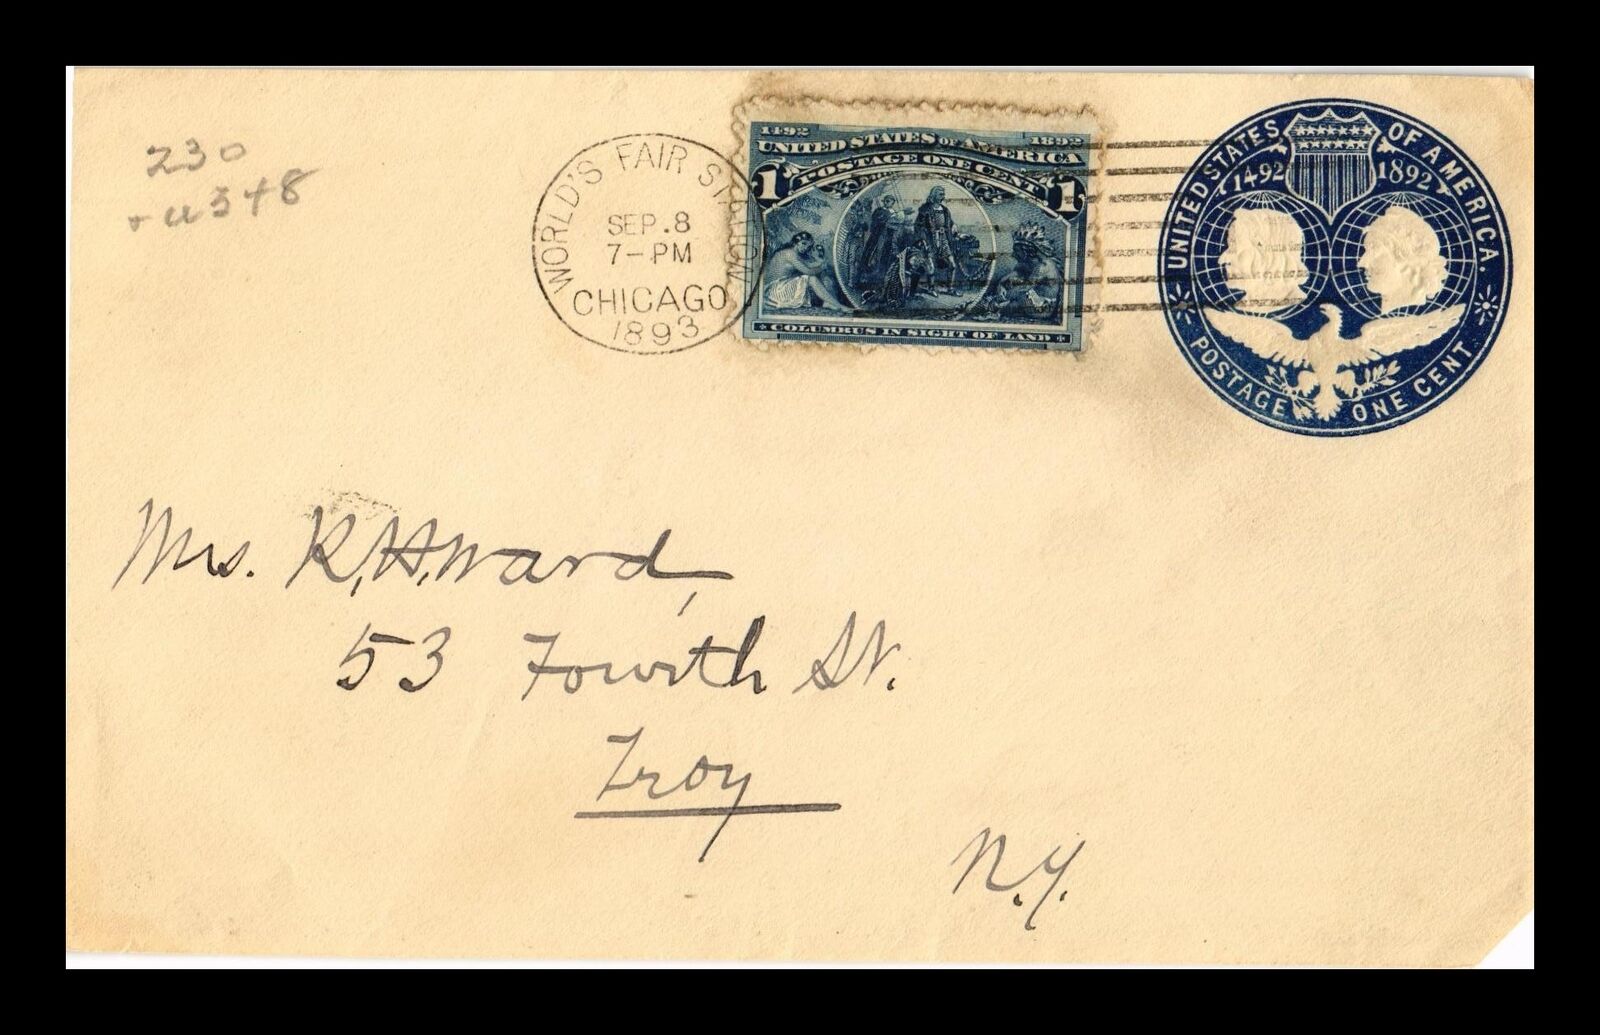 230
+ U348
WORLD'S FAIR STATION
SEP.8
7-PM
CHICAGO
1893
1492 1892
UNITED STATES OF AMERICA
POSTAGE ONE CENT
1 1
COLUMBUS IN SIGHT OF LAND
UNITED STATES OF AMERICA.
1492 1892
POSTAGE ONE CENT
Mrs. R. H. Ward,
53 Fourth St.
Troy
N.Y.